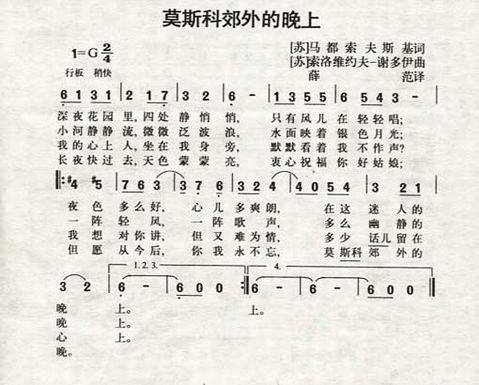 莫斯科郊外的晚上
1=G 2/4
[苏]马都索夫斯基词
行板 稍快
[苏]索洛维约夫-谢多伊曲
薛范译
6 1 3 1 | 2 1 7 3 2 | 3 2 | 6 - | 1 3 5 5 | 6 5 4 3 | 3 - |
深夜花园里,四处静悄悄, 只有风儿在轻轻唱;
小河静静流,微微泛波浪, 水面映着银色月光;
我的心上人,坐在我身旁, 默默看着我不作声?
长夜快过去,天色蒙蒙亮, 衷心祝福你好姑娘;
‖: #4 #5 | 7 6 3 | 3 2 4 | 4 0 5 4 | 3 2 1 |
夜色多么好, 心儿多爽朗, 在这迷人的
一阵轻风, 一阵歌声, 多么幽静的
我想对你讲, 但又难为情, 多少话儿留在
但愿从今后, 你我永不忘, 莫斯科郊外的
1.2.3. 4.
3 2 | 6 - | 6 0 0 :‖ 6 - | 6 - | 6 0 0 ‖
晚上。 上。
晚上。
心上。
晚。